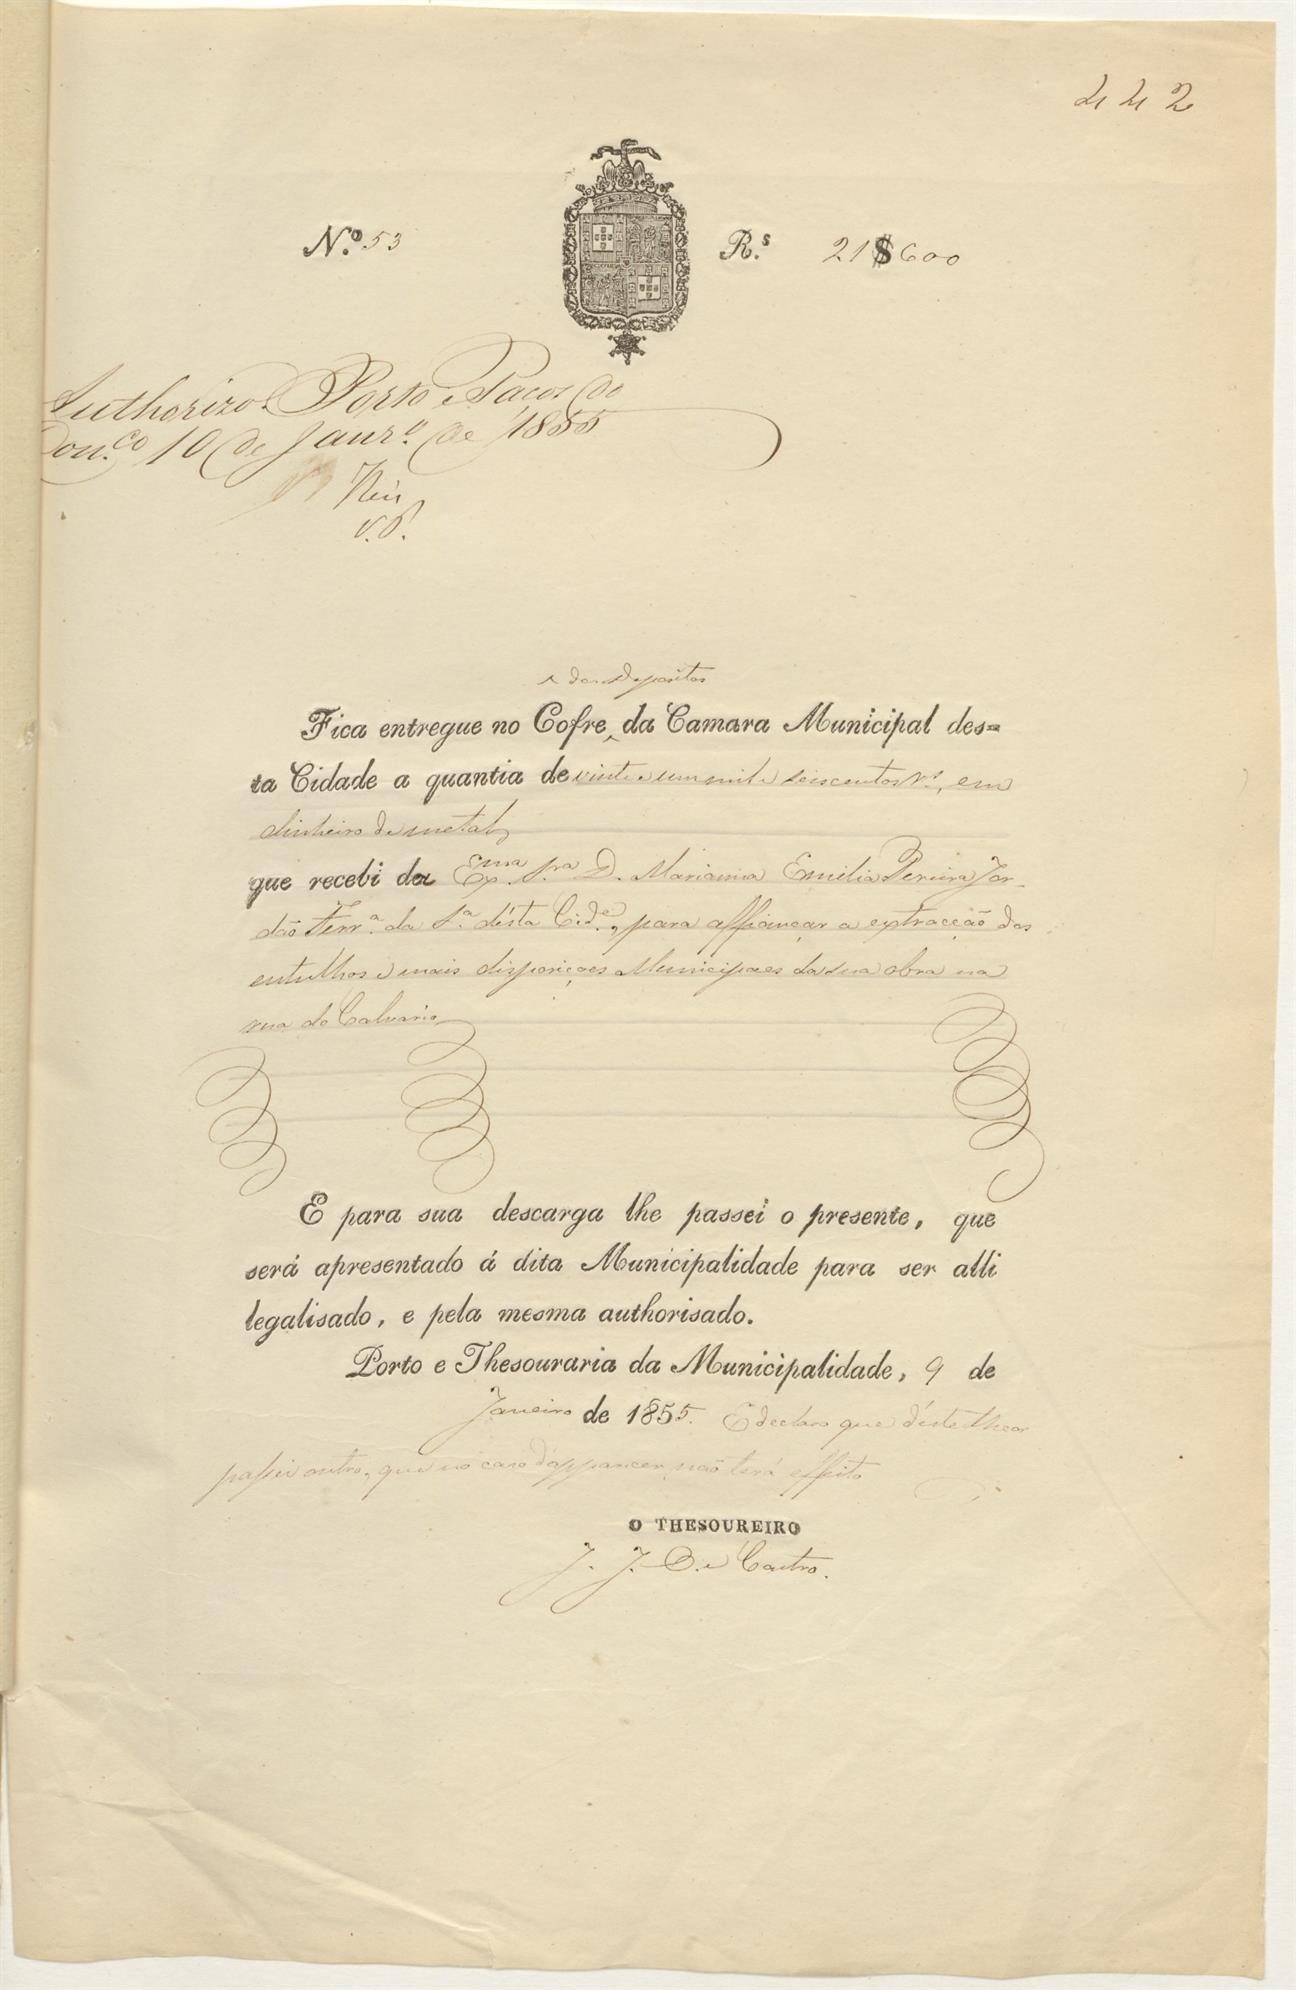 442
N.º 53 R.s 21$600
Authorizo. Porto e Paços do
Con.co 10 de Janr.o de 1855
V. P.
^ dos Depositos
Fica entregue no Cofre ^ da Camara Municipal des=
ta Cidade a quantia de vinte e um mil e seiscentos r.s, em
dinheiro de metal,
que recebi da Ex.ma Sr.a D. Marianna Emilia Pereira Jor-
dão Ferr.a da S.a désta Cid.e, para affiançar a extracção dos
entulhos e mais disposições Municipaes da sua obra na
rua do Calvario,
E para sua descarga lhe passei o presente, que
será apresentado á dita Municipalidade para ser alli
legalisado, e pela mesma authorisado.
Porto e Thesouraria da Municipalidade, 9 de
Janeiro de 1855. E declaro que déste theor
passei outro, que no caso d'apparecer, não terá effeito
O THESOUREIRO
J. J. de Castro.